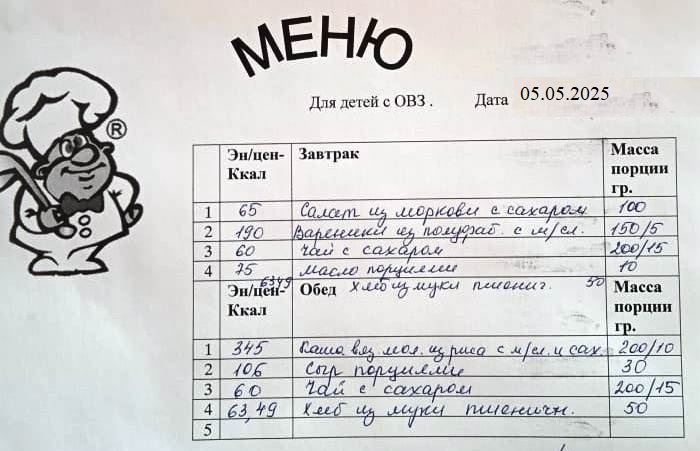 МЕНЮ
Для детей с ОВЗ. Дата 05.05.2025
®
Эн/цен-Ккал Завтрак Масса порции гр.
1 65 Салат из моркови с сахаром 100
2 190 Вареники из полуфаб. с м/сл. 150/5
3 60 Чай с сахаром 200/15
4 75 Масло порциями 10
63,49 Хлеб из муки пшенич. 50
Эн/цен-Ккал Обед Масса порции гр.
1 345 Каша вяз. мол. из риса с м/сл. и сах. 200/10
2 106 Сыр порциями 30
3 60 Чай с сахаром 200/15
4 63,49 Хлеб из муки пшеничн. 50
5